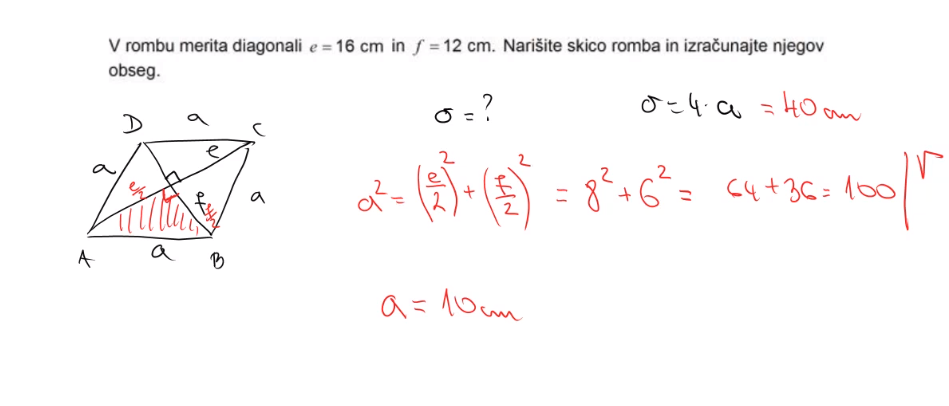 V rombu merita diagonali e = 16 cm in f = 12 cm. Narišite skico romba in izračunajte njegov
obseg.
σ = ? σ = 4 · a = 40 cm
D a C
a e
e/2 f a
f/2
A a B
a² = (e/2)² + (f/2)² = 8² + 6² = 64 + 36 = 100 |√
a = 10 cm